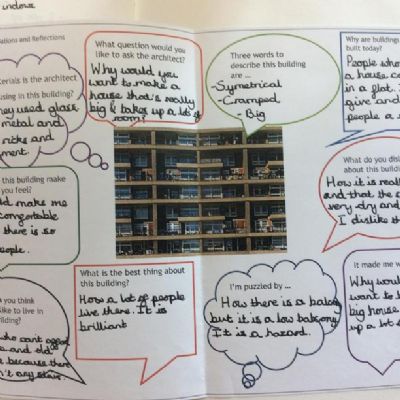 undows
ations and Reflections
terials is the architect
using in this building?
hey used glass
metal and
ricks and
ment.
What question would you
like to ask the architect?
Why would you
want to make a
house that's really
big & takes up a lot of
room?
Three words to
describe this building
are ...
-Symetrical
-Cramped
-Big
Why are buildings
built today?
People who
a house ca
in a flat.
give and
people a
this building make
you feel?
ld make me
comfortable
there is so
people.
What do you dis
about this buildin
How it is reall
and that the c
very dry and
I dislike th
you think
like to live in
ilding?
who cant affor
e and old
a because there
n't any stair
What is the best thing about
this building?
How a lot of people
live there. It is
brilliant
I'm puzzled by ...
How there is a balcony
but it is a low balcony.
It is a hazard.
it made me w
Why would
want to b
big house
up a lot